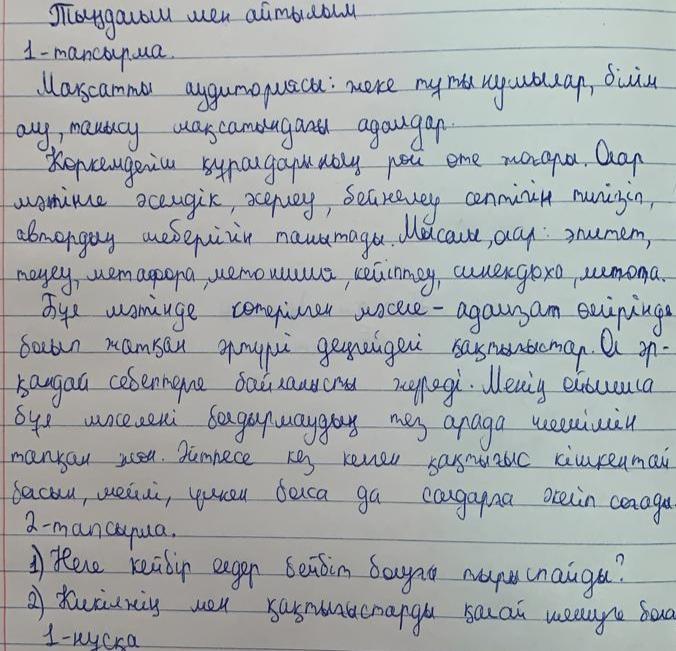 Тыңдалым мен айтылым
1-тапсырма.
Мақсатты аудиториясы: жеке тұтынушылар, білім
алу, танысу мақсатындағы адамдар.
Көркемдегіш құралдарының рөлі өте жоғары. Олар
мәтінге әсемдік, әрлеу, бейнелеу септігін тигізіп,
автордың шеберлігін танытады. Мысалы, олар: эпитет,
теңеу, метафора, метонимия, кейіптеу, синекдоха, литота.
Бұл мәтінде көтерілген мәселе - адамзат өмірінде
болып жатқан әртүрлі деңгейдегі қақтығыстар. Ол әр-
қандай себептерге байланысты жүреді. Менің ойымша
бұл мәселені болдырмаудың тез арада шешімін
тапқан жөн. Әйтпесе кез келген қақтығыс кішкентай
болсын, мейлі, үлкен болса да салдарға әкеліп соғады.
2-тапсырма.
1) Неге кейбір елдер бейбіт болуға тырыспайды?
2) Кикілжің мен қақтығыстарды қалай шешуге бола
1-нұсқа